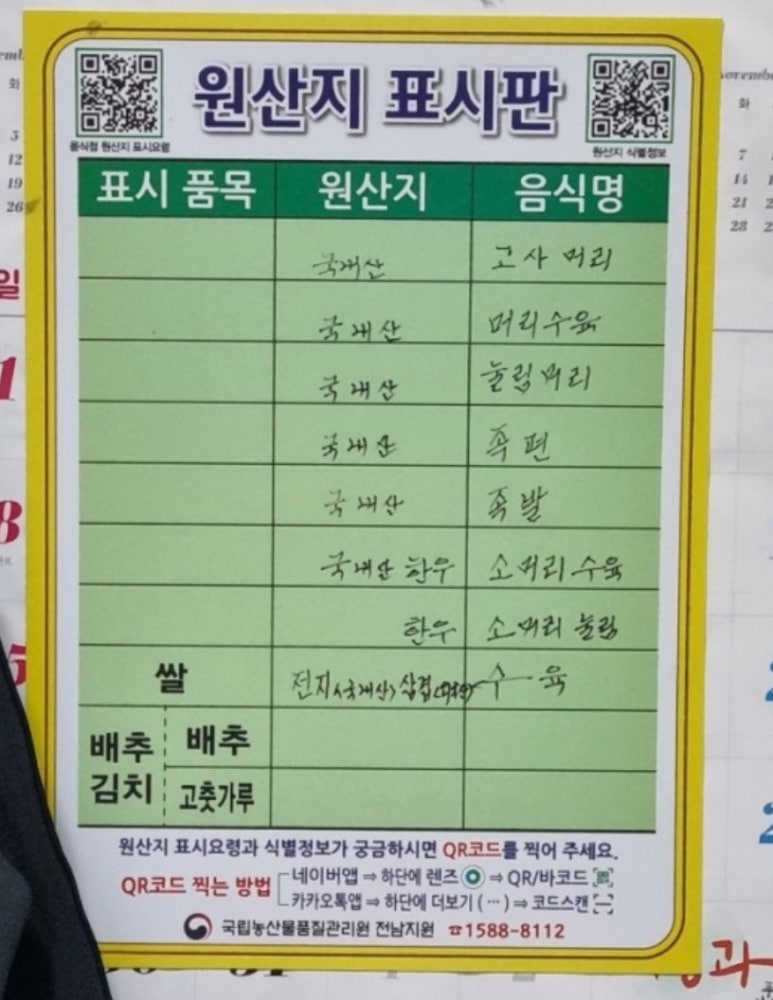 음식점 원산지 표시요령
원산지 표시판
원산지 식별정보
표시 품목 원산지 음식명
국내산 고사 머리
국내산 머리수육
국내산 눌림머리
국내산 족편
국내산 족발
국내산 한우 소머리수육
한우 소머리 눌림
쌀 전지(국내산) 삼겹 수육
배추김치 배추
고춧가루
원산지 표시요령과 식별정보가 궁금하시면 QR코드를 찍어 주세요.
QR코드 찍는 방법
네이버앱 ⇒ 하단에 렌즈 ⇒ QR/바코드
카카오톡앱 ⇒ 하단에 더보기 (···) ⇒ 코드스캔
국립농산물품질관리원 전남지원 ☎1588-8112
화
5
12
19
26
일
1
8
5
화
7
14
21
28
과